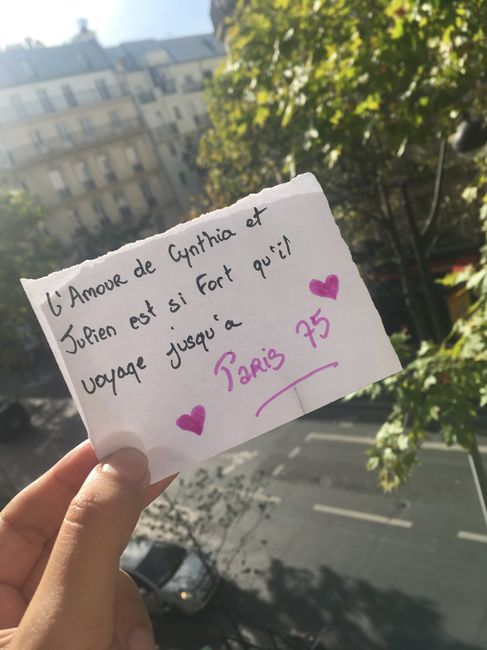 L'Amour de Cynthia et
Julien est si Fort qu'il
voyage jusqu'a
Paris 75